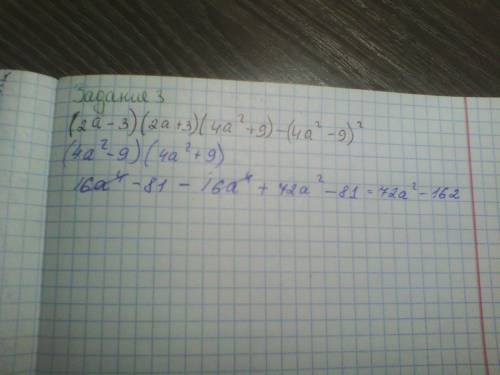 Задание 3
(2a-3)(2a+3)(4a²+9)-(4a²-9)²
(4a²-9)(4a²+9)
16a⁴-81-16a⁴+72a²-81=72a²-162